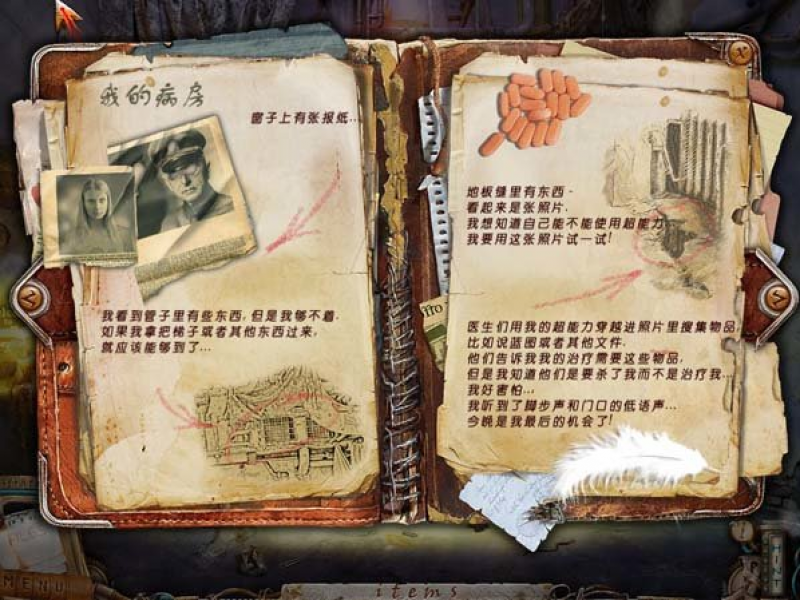 我的病房
窗子上有张报纸..
我看到管子里有些东西,但是我够不着.
如果我拿把梯子或者其他东西过来,
就应该能够到了...
地板缝里有东西.
看起来是张照片.
我想知道自己能不能使用超能力
我要用这张照片试一试!
医生们用我的超能力穿越进照片里搜集物品
比如说蓝图或者其他文件.
他们告诉我我的治疗需要这些物品,
但是我知道他们是要杀了我而不是治疗我.
我好害怕...
我听到了脚步声和门口的低语声...
今晚是我最后的机会了!
MENU
items
HINT